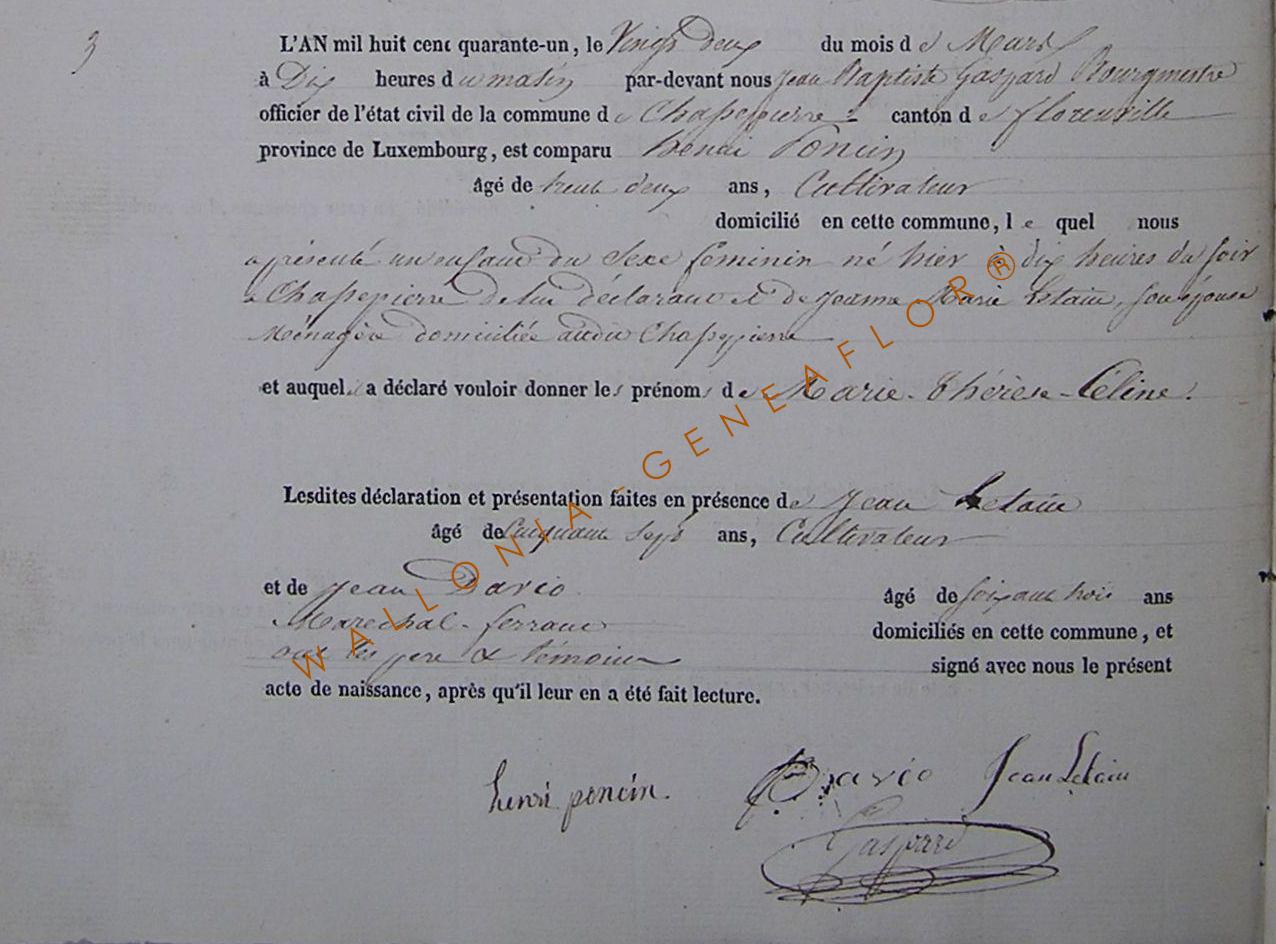 3
L'AN mil huit cent quarante-un, le Vingt deux du mois de Mars
à Dix heures du matin par-devant nous Jean Baptiste Gaspard Bourgmestre
officier de l'état civil de la commune de Chassepierre canton de florenville
province de Luxembourg, est comparu henri Poncin
âgé de trente deux ans, Cultivateur
domicilié en cette commune, le quel nous
a présenté un enfant du Sexe feminin né hier à dix heures du soir
à Chassepierre de lui déclarant et de Marie Letain, son épouse
Ménagère domiciliés audit Chassepierre
et auquel il a déclaré vouloir donner les prénoms de Marie-Thérèse-Céline.
Lesdites déclaration et présentation faites en présence de Jean Letain
âgé de Cinquante Sept ans, Cultivateur
et de Jean Dario âgé de soixante trois ans
Marechal-ferrant domiciliés en cette commune, et
ont les père & témoins signé avec nous le présent
acte de naissance, après qu'il leur en a été fait lecture.
henri poncin. Dario Jean Letain
Gaspard
WALLONIA-GENEAFLOR®